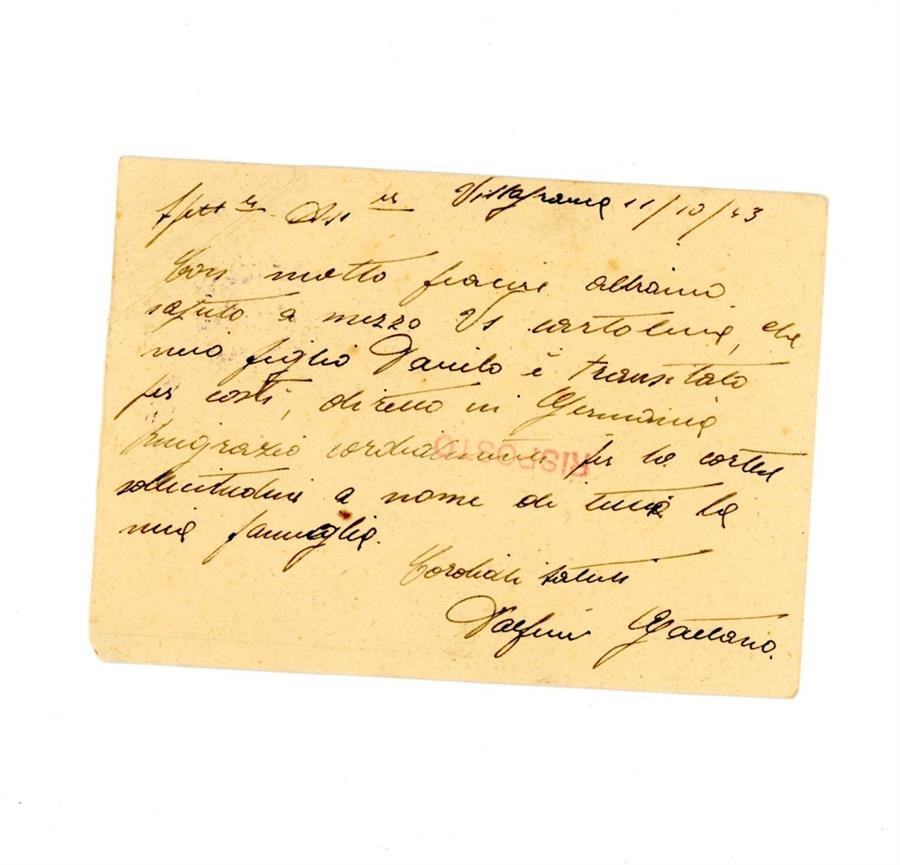 Spett le Ditta Villafranca 11/10/43
Con molto piacere abbiamo
saputo a mezzo Vs cartolina, che
mio figlio Danilo è transitato
per costì, diretto in Germania
Ringrazio cordialmente per la cortese
RISPOSTO
sollecitudine a nome di tutta la
mia famiglia.
Cordiali saluti
Gaetano.